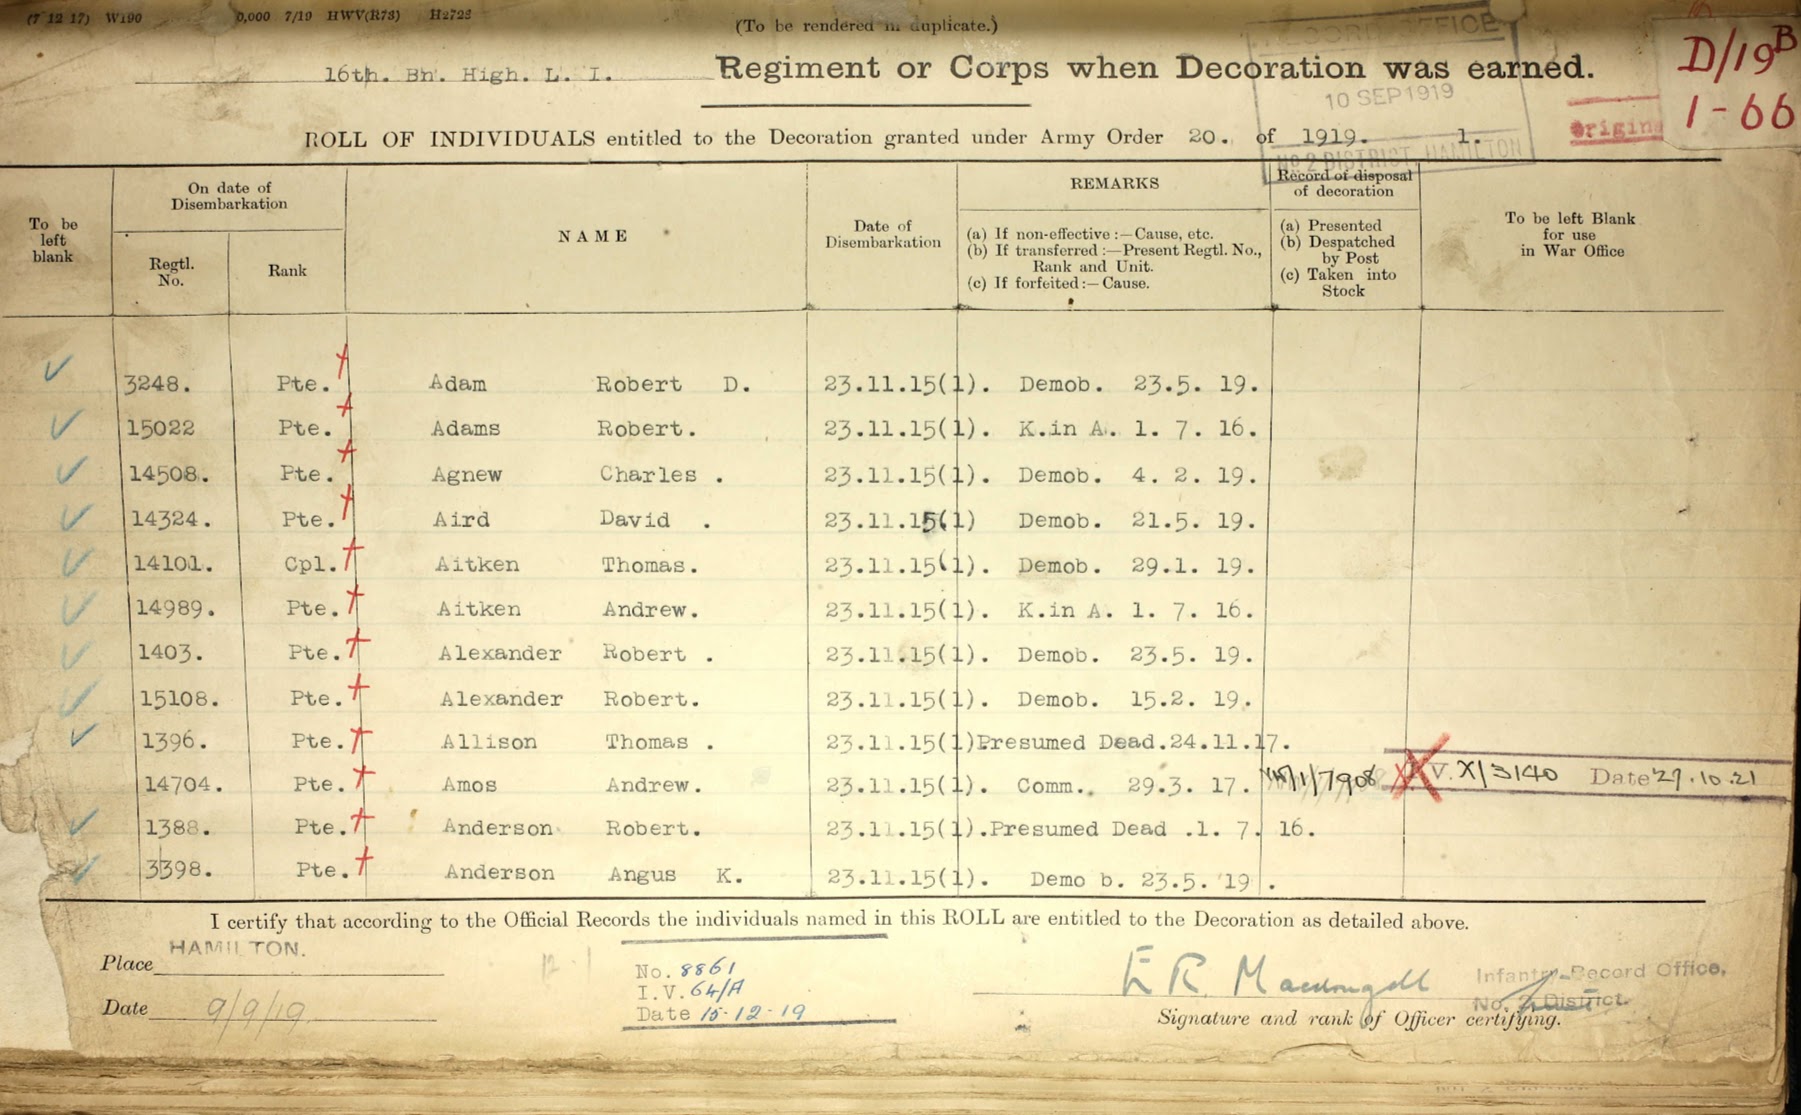 (7 12 17) W190 0,000 7/19 HWV(R73) H2728
(To be rendered in duplicate.)
16th. Bn. High. L. I. Regiment or Corps when Decoration was earned.
RECORD OFFICE
10 SEP 1919
No 2 DISTRICT HAMILTON
D/19B
1-66
ROLL OF INDIVIDUALS entitled to the Decoration granted under Army Order 20. of 1919. 1.
To be left blank
On date of Disembarkation
Regtl. No.
Rank
NAME
Date of Disembarkation
REMARKS
(a) If non-effective :—Cause, etc.
(b) If transferred :—Present Regtl. No., Rank and Unit.
(c) If forfeited :—Cause.
Record of disposal of decoration
(a) Presented
(b) Despatched by Post
(c) Taken into Stock
To be left Blank for use in War Office
3248. Pte. Adam Robert D. 23.11.15(1). Demob. 23.5. 19.
15022 Pte. Adams Robert. 23.11.15(1). K.in A. 1. 7. 16.
14508. Pte. Agnew Charles . 23.11.15(1). Demob. 4. 2. 19.
14324. Pte. Aird David . 23.11.15(1) Demob. 21.5. 19.
14101. Cpl. Aitken Thomas. 23.11.15(1). Demob. 29.1. 19.
14989. Pte. Aitken Andrew. 23.11.15(1). K.in A. 1. 7. 16.
1403. Pte. Alexander Robert . 23.11.15(1). Demob. 23.5. 19.
15108. Pte. Alexander Robert. 23.11.15(1). Demob. 15.2. 19.
1396. Pte. Allison Thomas . 23.11.15(1)Presumed Dead.24.11.17.
14704. Pte. Amos Andrew. 23.11.15(1). Comm.. 29.3. 17. /1/7908 V. X/3140 Date 27.10.21
1388. Pte. Anderson Robert. 23.11.15(1).Presumed Dead .1. 7. 16.
3398. Pte. Anderson Angus K. 23.11.15(1). Demo b. 23.5. '19 .
I certify that according to the Official Records the individuals named in this ROLL are entitled to the Decoration as detailed above.
Place HAMILTON.
Date 9/9/19
No. 8861
I.V. 64/A
Date 15-12-19
E R Macdougall
Infantry Record Office,
No. 2 District.
Signature and rank of Officer certifying.